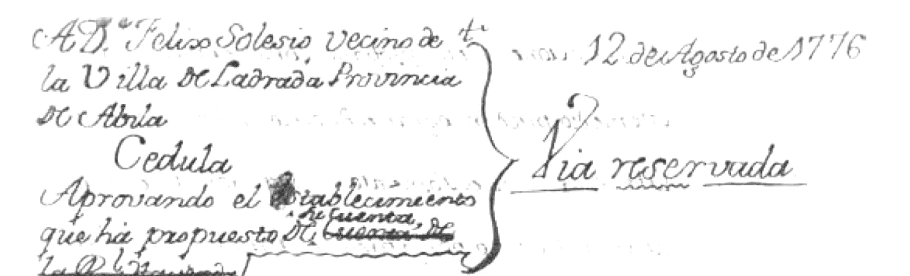 A D.ⁿ Felix Solesio vecino de
la Villa de Ladrada Provincia
de Abila
Cedula
Aprovando el establecimiento
que ha propuesto de su cuenta,
la Rl
12 de Agosto de 1776
Via reservada